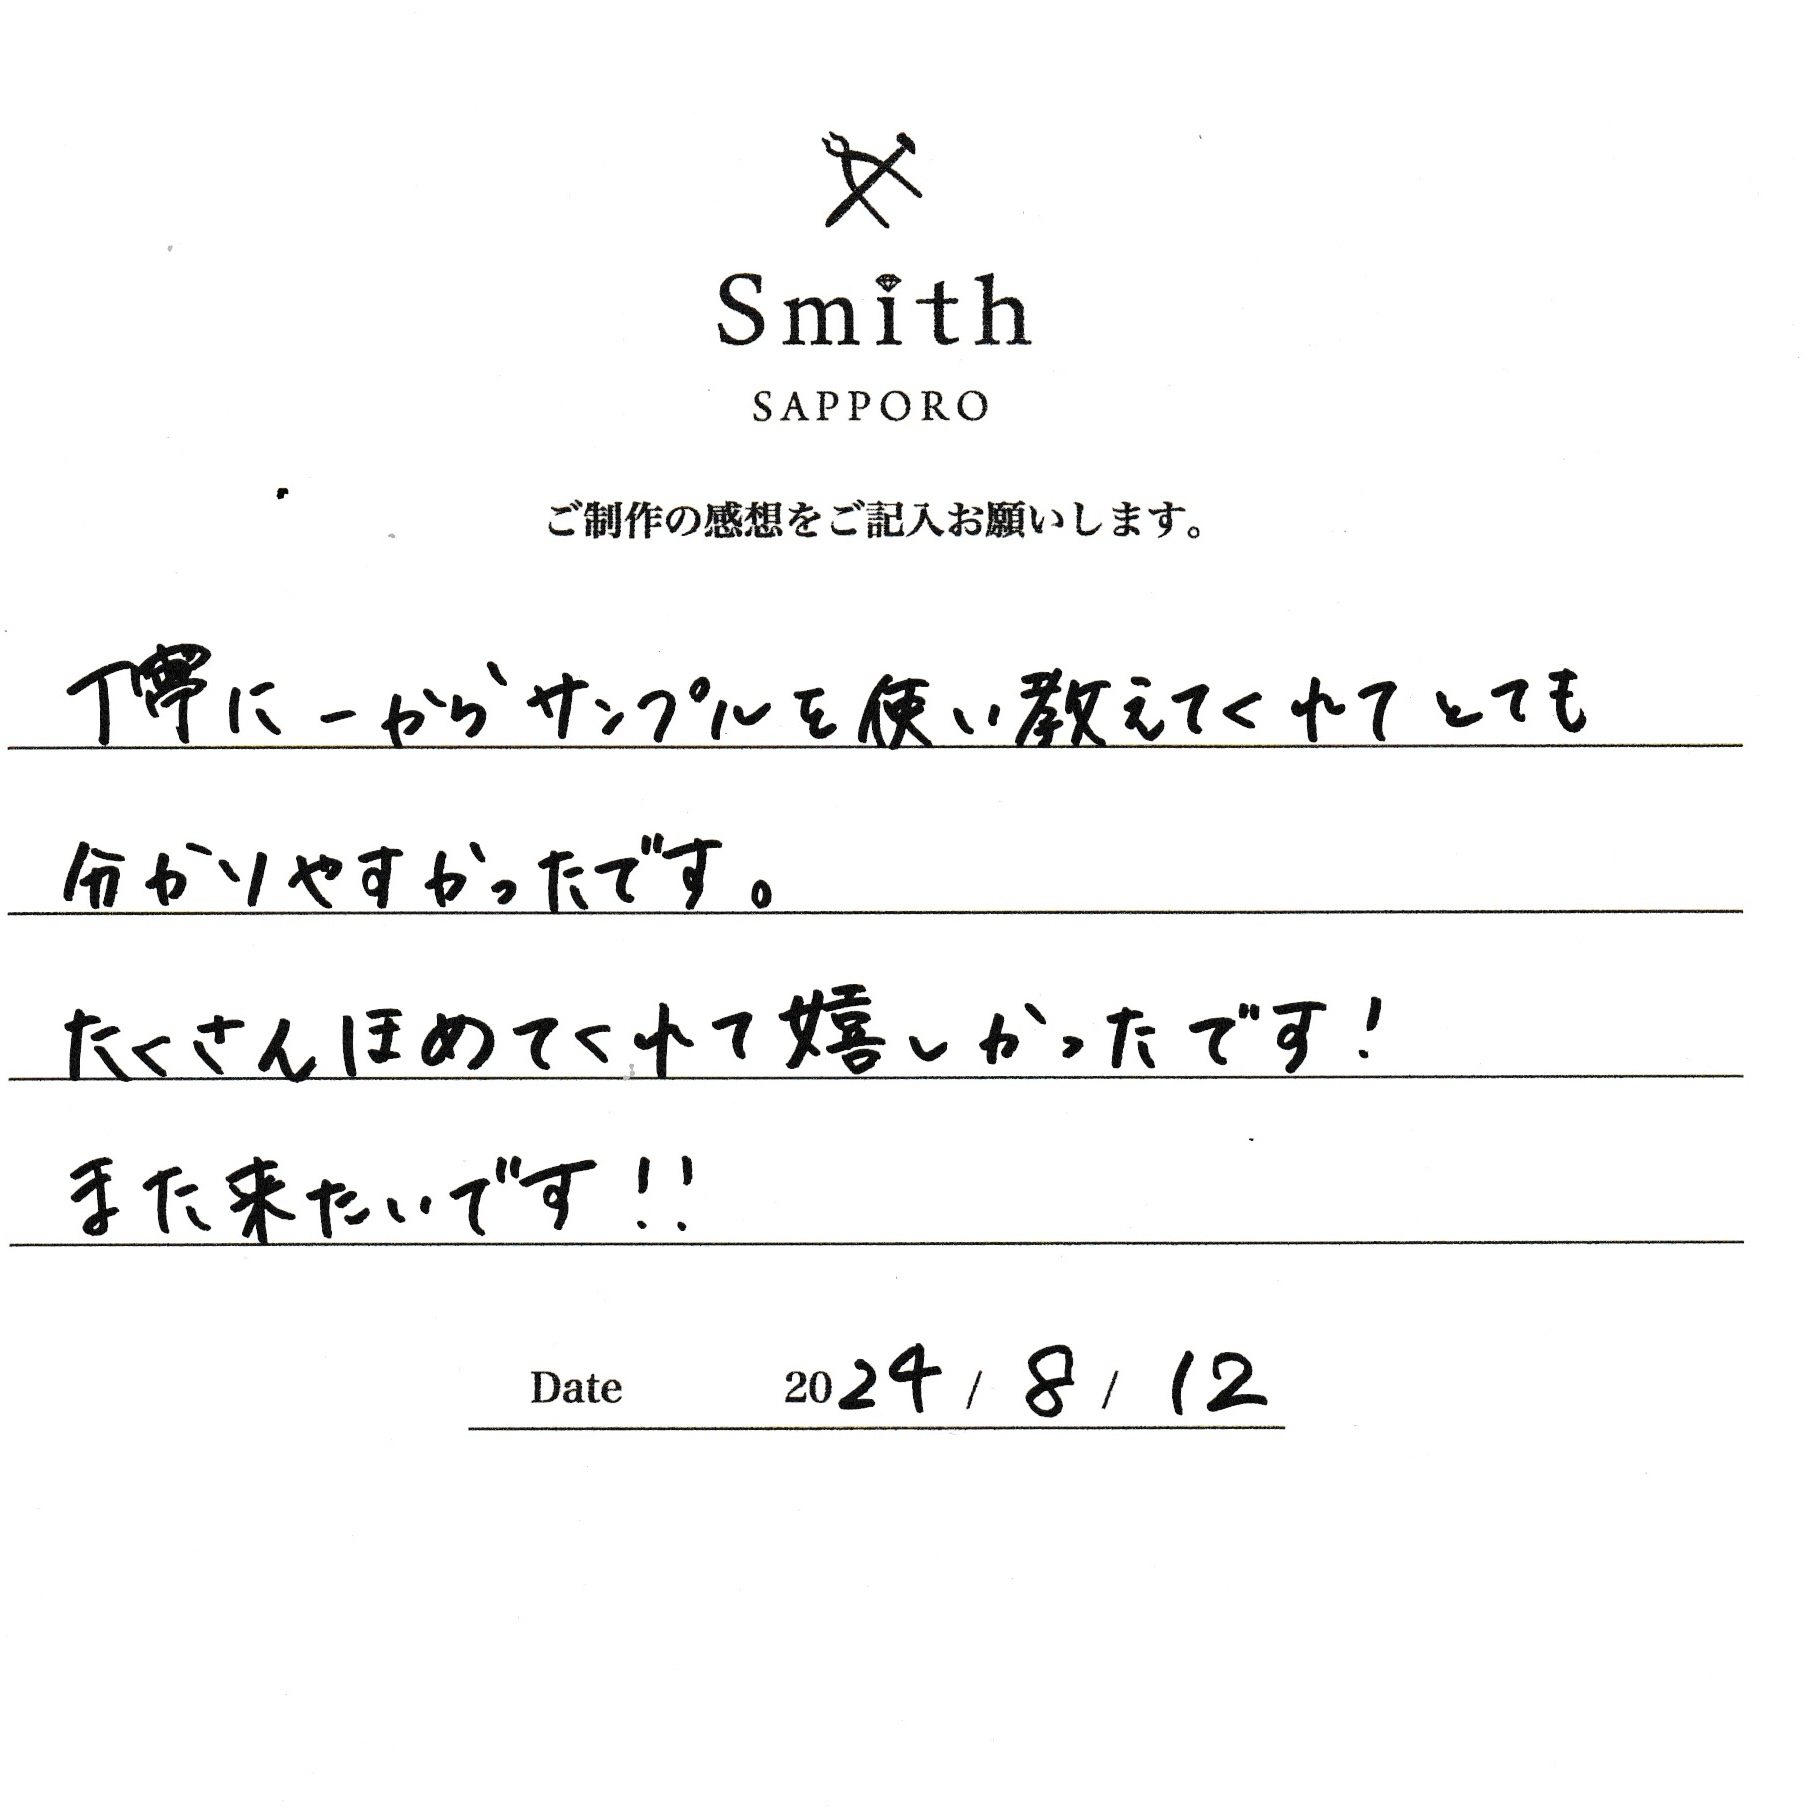 Smith
SAPPORO
ご制作の感想をご記入お願いします。
丁寧に一からサンプルを使い教えてくれてとても
分かりやすかったです。
たくさんほめてくれて嬉しかったです!
また来たいです!!
Date 2024 / 8 / 12